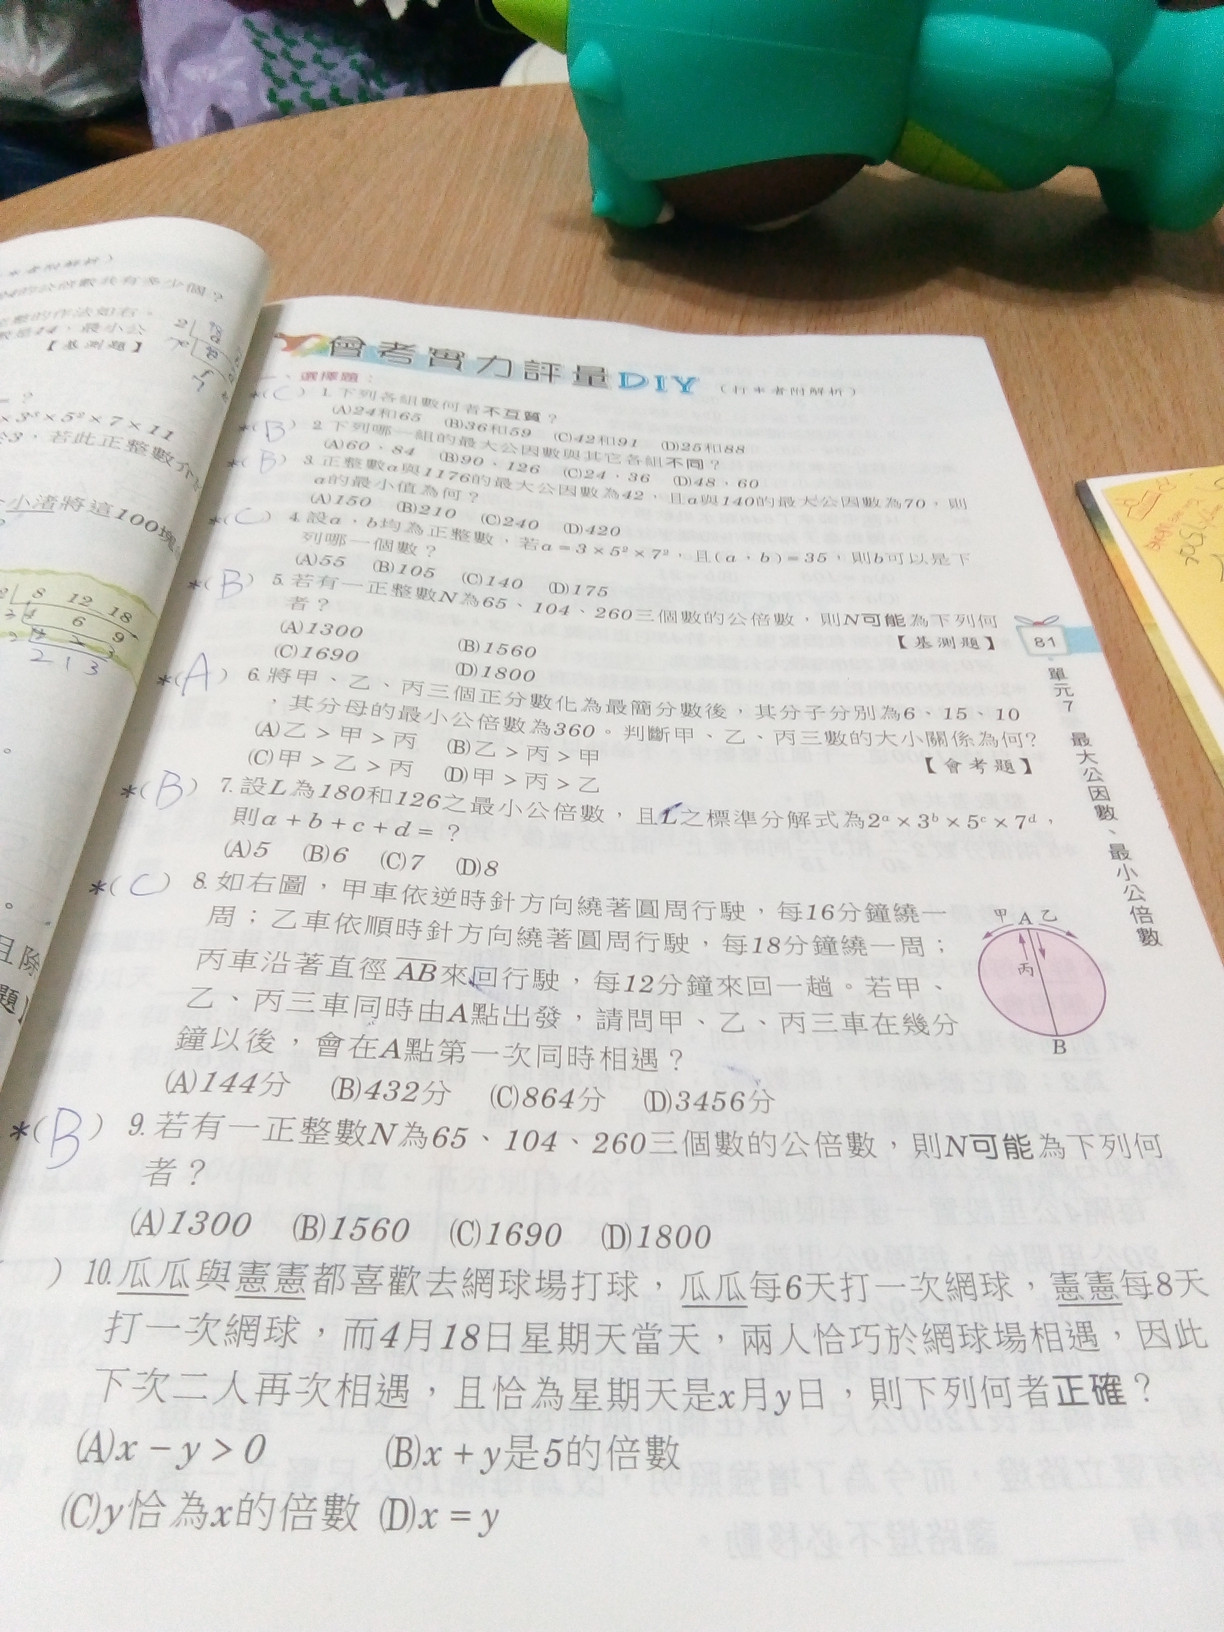 會考實力評量DIY（打*者附解析）
一、選擇題：
*(C) 1.下列各組數何者不互質？
(A)24和65 (B)36和59 (C)42和91 (D)25和88
*(B) 2.下列哪一組的最大公因數與其它各組不同？
(A)60、84 (B)90、126 (C)24、36 (D)48、60
*(B) 3.正整數a與1176的最大公因數為42，且a與140的最大公因數為70，則
a的最小值為何？
(A)150 (B)210 (C)240 (D)420
*(C) 4.設a、b均為正整數，若a=3×5²×7²，且(a，b)=35，則b可以是下
列哪一個數？
(A)55 (B)105 (C)140 (D)175
*(B) 5.若有一正整數N為65、104、260三個數的公倍數，則N可能為下列何
者？ 【基測題】
(A)1300 (B)1560
(C)1690 (D)1800
*(A) 6.將甲、乙、丙三個正分數化為最簡分數後，其分子分別為6、15、10
，其分母的最小公倍數為360。判斷甲、乙、丙三數的大小關係為何？
(A)乙>甲>丙 (B)乙>丙>甲 【會考題】
(C)甲>乙>丙 (D)甲>丙>乙
*(B) 7.設L為180和126之最小公倍數，且L之標準分解式為2ᵃ×3ᵇ×5ᶜ×7ᵈ，
則a+b+c+d=？
(A)5 (B)6 (C)7 (D)8
*(C) 8.如右圖，甲車依逆時針方向繞著圓周行駛，每16分鐘繞一
周；乙車依順時針方向繞著圓周行駛，每18分鐘繞一周；
丙車沿著直徑AB來回行駛，每12分鐘來回一趟。若甲、
乙、丙三車同時由A點出發，請問甲、乙、丙三車在幾分
鐘以後，會在A點第一次同時相遇？
(A)144分 (B)432分 (C)864分 (D)3456分
甲 A 乙
丙
B
*(B) 9.若有一正整數N為65、104、260三個數的公倍數，則N可能為下列何
者？
(A)1300 (B)1560 (C)1690 (D)1800
) 10.瓜瓜與憲憲都喜歡去網球場打球，瓜瓜每6天打一次網球，憲憲每8天
打一次網球，而4月18日星期天當天，兩人恰巧於網球場相遇，因此
下次二人再次相遇，且恰為星期天是x月y日，則下列何者正確？
(A)x－y>0 (B)x+y是5的倍數
(C)y恰為x的倍數 (D)x=y
81
單元7 最大公因數、最小公倍數
的公倍數共有多少個？
的作法如右，
是14，最小公
【基測題】
？
×3³×5²×7×11
3，若此正整數介
小渚將這100塊
8 12 18
6 9
2 1 3
且除
題】